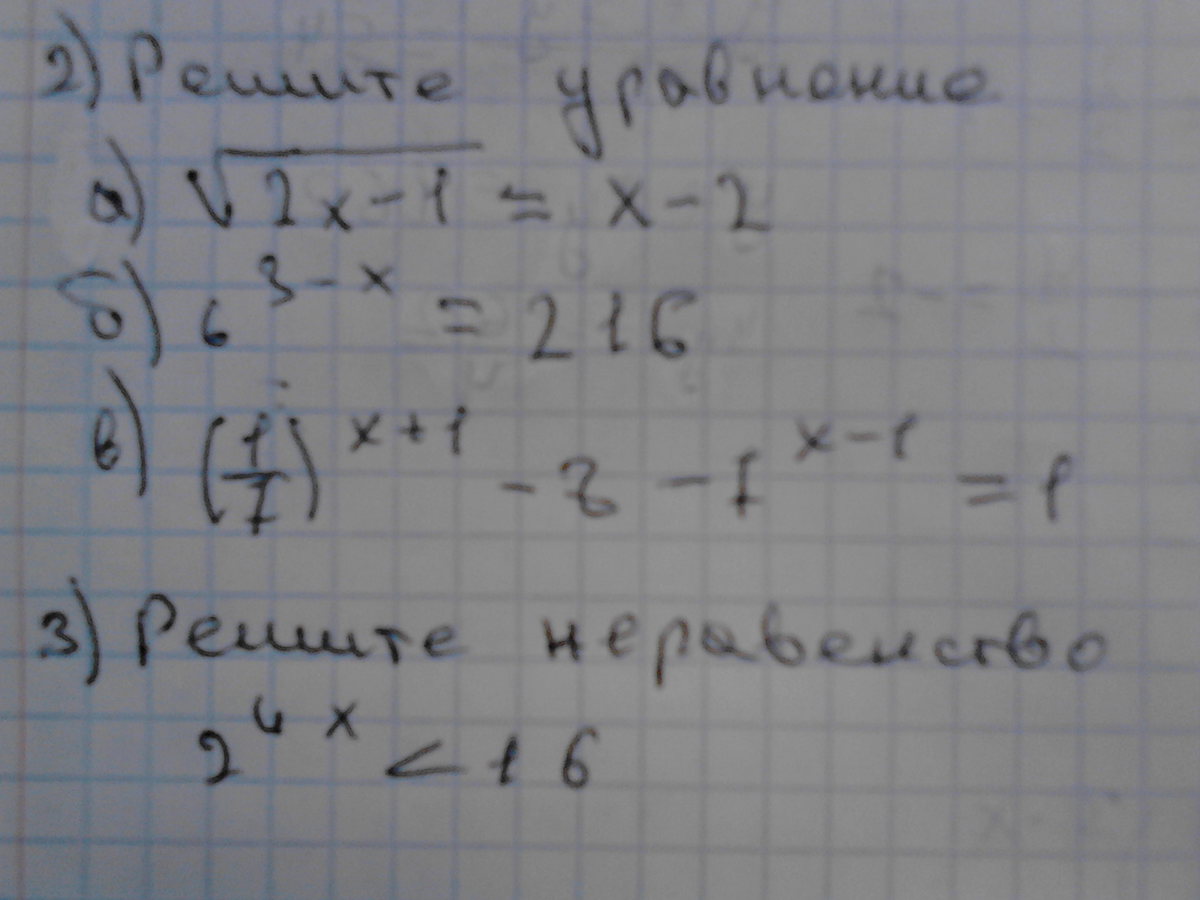 2) Решите уравнение
а) √2x-1 = x-2
б) 6^3-x = 216
в) (1/7)^x+1 - 8 - 7^x-1 = 1
3) Решите неравенство
2^4x < 16